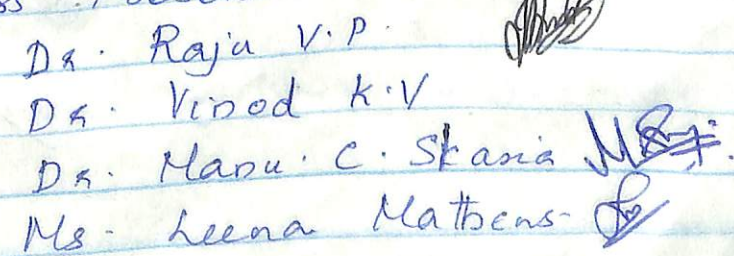 Dr. Raju V.P.
Dr. Vinod K.V
Dr. Manu. C. Skaria
Ms. Leena Mathews